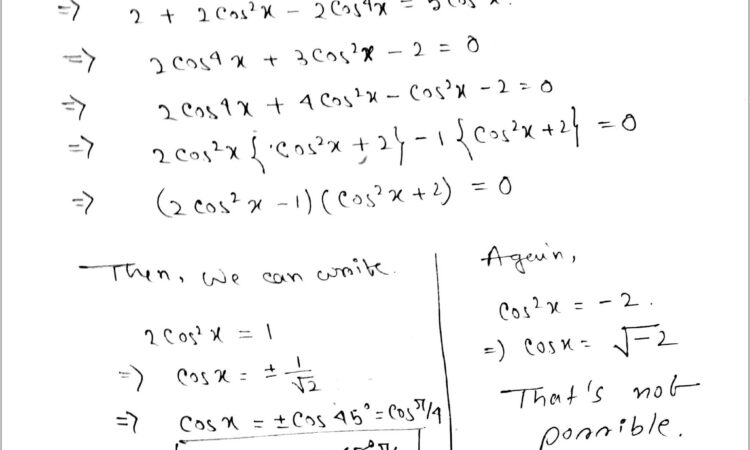 => 2 + 2cos²x - 2cos⁴x = 5cos²x.
=> 2cos⁴x + 3cos²x - 2 = 0
=> 2cos⁴x + 4cos²x - cos²x - 2 = 0
=> 2cos²x {cos²x + 2} - 1 {cos²x + 2} = 0
=> (2cos²x - 1)(cos²x + 2) = 0
Then, we can write.
2cos²x = 1
=> cosx = ± 1/√2
=> cosx = ± cos 45° = cos π/4
Again,
cos²x = -2.
=> cosx = √-2
That's not
possible.